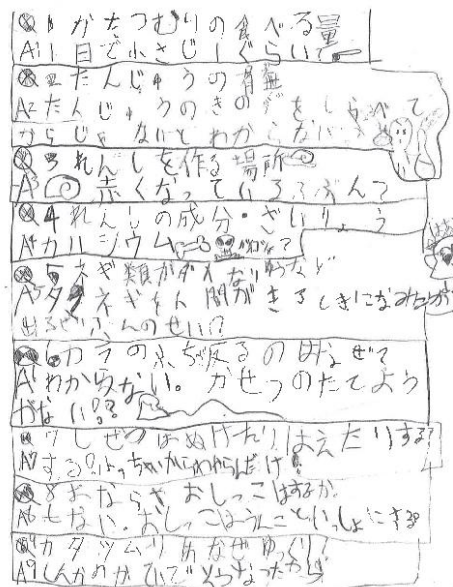 Q1 かたつむりの食べる量
A1 1日で小さじ1ぐらい?
Q2 たんじゅうの
A2 たんじゅうのきのうをしらべて
からじゃないとわからない
Q3 れんしを作る場所
A3 赤くなっているぶぶん?
Q4 れんしの成分・ざいりょう
A4 カルシウム
Q5 ネギ類がダメなりゆうなど
A5 タマネギを人間がきるときになみだが
出るせいぶんのせい?
Q6 カラの 反るのはなぜ?
A6 わからない。かせつのたてよう
がない!??
Q7 しぜつはぬけたりはえたりする?
A7 する?
Q8 おならや おしっこはするか
A8 しない。おしっこはうんこといっしょにする
Q9 カタツムリはなぜゆっくり?
A9 しんかのかていでそうなったから